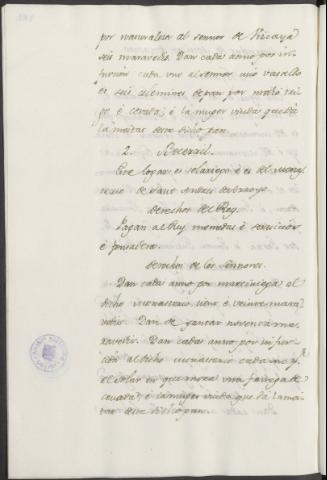 por naturaleza al sennor de Vizcaya
seis maravedis. Dan cada anno por in-
furcion cada uno al sennor, cuio vasallo
es, seis celemines de pan por medio tri-
go è cevada; è la muger viuda que dà
la meitat deste dicho pan.
2. Becerril.
Este logar es solariego è es del mones-
terio de Sant Andres de Arroyo.
Derechos del Rey.
Pagan al Rey monedas è servicios
è
Derechos de los Sennores.
Dan cada anno por martiniega al
dicho monasterio ciento è veinte mara-
vedis. Dan de yantar noventa ma-
ravedis. Dan cada anno por infur-
cion al dicho monasterio cada uno
el solar en que mora una fanega de
cevada, è la muger viuda que dà la mei-
tat deste dicho pan.